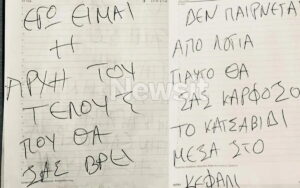 ΕΓΩ ΕΙΜΑΙ
Η
ΑΡΧΗ ΤΟΥ
ΤΕΛΟΥΣ
ΠΟΥ ΘΑ
ΣΑΣ ΒΡΕΙ
ΔΕΝ ΠΑΙΡΝΕΤΑΙ
ΑΠΟ ΛΟΓΙΑ
ΓΙΑΥΤΟ ΘΑ
ΣΑΣ ΚΑΡΦΩΣΟ
ΤΟ ΚΑΤΣΑΒΙΔΙ
ΜΕΣΑ ΣΤΟ
ΚΕΦΑΛΙ
Newsit